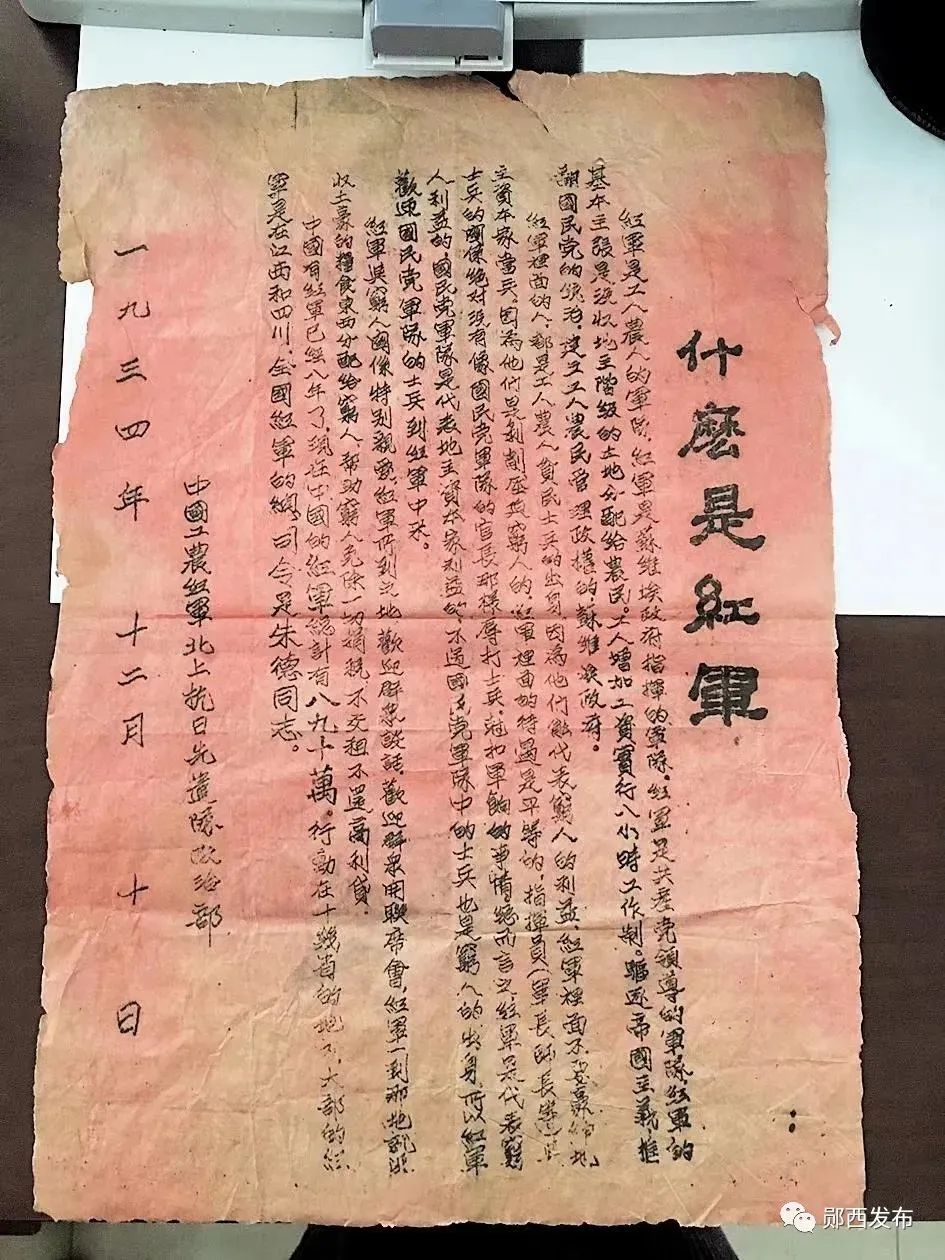 什麼是紅軍
紅軍是工人農人的軍隊，紅軍是蘇維埃政府指揮的軍隊，紅軍是共產党領導的軍隊，紅軍的
基本主張是没收地主階級的土地分配給農民。工人增加工資實行八小時工作制。驅逐帝國主義推
翻國民党的統治，建立工人農民管理政權的蘇維埃政府。
紅軍裡面的人，都是工人農人貧民士兵的出身，因為他們能代表窮人的利益，紅軍裡面不要豪紳地
主資本家當兵。因為他們是剝削壓迫窮人的，紅軍裡面的待遇是平等的，指揮員（軍長師長等）與
士兵的關係絕对没有像國民党軍隊的官長那樣辱打士兵，尅扣軍餉的事情總而言之，紅軍是代表窮
人利益的，國民党軍隊是代表地主資本家利益的，不過國民党軍隊中的士兵也是窮人的出身，所以紅軍
歡迎國民党軍隊的士兵到紅軍中來。
紅軍與窮人關係特别親密，紅軍所到之地歡迎群眾談話，歡迎群眾開聯席會，紅軍一到那地就没
收土豪的糧食東西分配給窮人，幫助窮人免除一切捐稅不交租不還高利貸。
中國有紅軍已經八年了，現在中國的紅軍總計有八九十萬。行動在十幾省的地下，大部的紅
軍是在江西和四川，全國紅軍的總司令是朱德同志。
中國工農紅軍北上抗日先遣隊政治部
一九三四年十二月十日
郧西发布